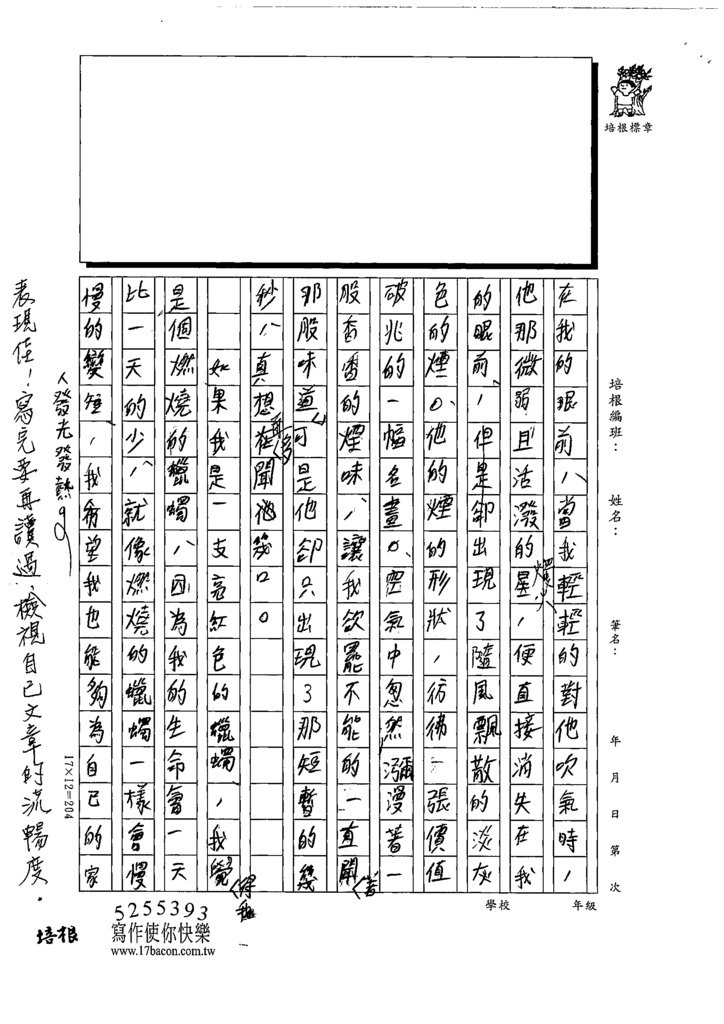 培根標章
培根編班：
姓名：
筆名：
年 月 日 第 次
學校
年級
在我的眼前，當我輕輕的對他吹氣時，
他那微弱且活潑的星火，便直接消失在我
的眼前，但是卻出現了隨風飄散的淡灰
色的煙。他的煙的形狀，彷彿一張價值
破兆的一幅名畫。空氣中忽然瀰漫著一
股香香的煙味，讓我欲罷不能的一直聞著
那股味道，可是他卻只出現了那短暫的幾
秒，真想再多聞他幾口。
如果我是一支亮紅色的蠟蠋，我覺得我
是個燃燒的蠟蠋，因為我的生命會一天
比一天的少，就像燃燒的蠟蠋一樣會慢
慢的變短，我希望我也能夠為自已的家
人發光發熱。
表現佳！寫完要再讀過，檢視自己文章的流暢度。
17×12=204
培根
5255393
寫作使你快樂
www.17bacon.com.tw